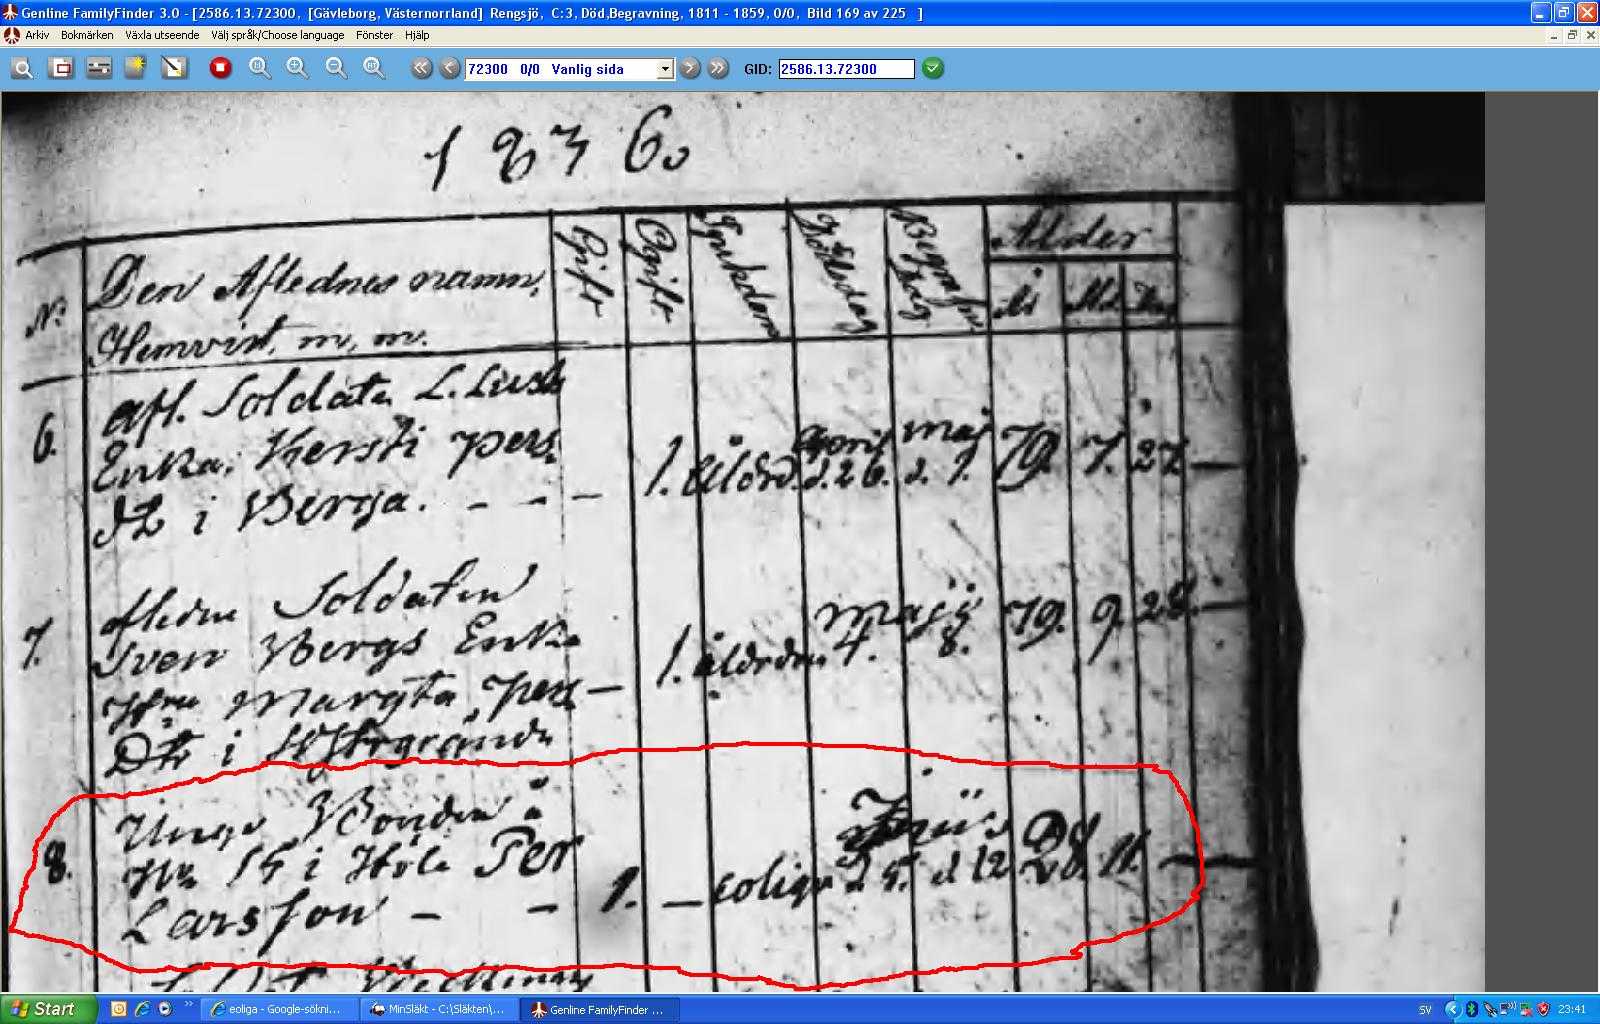 Genline FamilyFinder 3.0 - [2586.13.72300, [Gävleborg, Västernorrland] Rengsjö, C:3, Död,Begravning, 1811 - 1859, 0/0, Bild 169 av 225 ]
Arkiv Bokmärken Växla utseende Välj språk/Choose language Fönster Hjälp
72300 0/0 Vanlig sida GID: 2586.13.72300
1836.
N: Den Aflednes namn, Gift Ogift Sjukdom Dödsdag Begrafn dag Ålder
Hemvist, m, m. År
6. afl. Soldaten L. Lusk
Enka, Kersti Pers April maj
Dt i Berga. - - - 1. Ålderd. d. 26. d. 1. 79. 7. 27 —
7. Soldaten
Sven Bergs Enka majj 79. 9. 28. —
Margta Pers — 1. ålderdom 4. 8.
Dtr i
8. Unge Bonden å
N 15 i Per
Larsson - - 1. — eoliga d 5. d 12 28. 11. —
Start eoliga - Google-sökni... MinSläkt - C:\Släkten\... Genline FamilyFinder ... SV 23:41